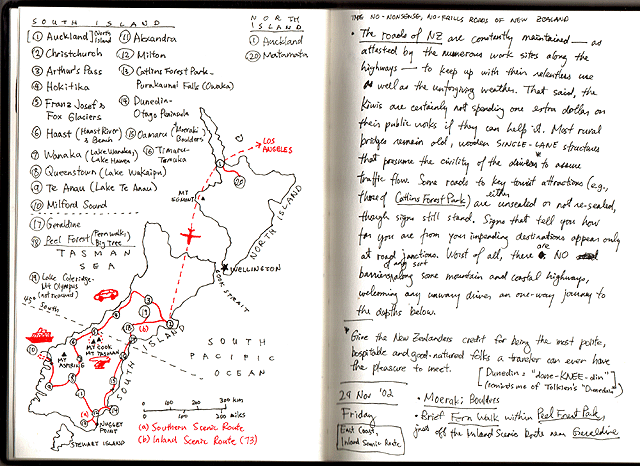 SOUTH ISLAND
NORTH ISLAND
① Auckland [North Island]
② Christchurch
③ Arthur's Pass
④ Hokitika
⑤ Franz Josef & Fox Glaciers
⑥ Haast (Haast River & Beach
⑦ Wanaka (Lake Wanaka, Lake Hawea
⑧ Queenstown (Lake Wakatipu)
⑨ Te Anau (Lake Te Anau)
⑩ Milford Sound
⑰ Geraldine
⑱ Peel Forest (Fern walks, Big Tree
⑲ Lake Coleridge-
Mt Olympus
⑪ Alexandra
⑫ Milton
⑬ Catlins Forest Park -
Purakaunui Falls (Owaka)
⑭ Dunedin -
Otago Peninsula
⑮ Oamaru (Moeraki Boulders
⑯ Timaru-
Temuka
① Auckland
⑳ Matamata
TASMAN
SEA
LOS ANGELES
MT EGMONT
NORTH ISLAND
WELLINGTON
COOK STRAIT
South
MT COOK
MT TASMAN
MT ASPIRING
SOUTH ISLAND
SOUTH
PACIFIC
OCEAN
(b)
(a)
NUGGET POINT
STEWART ISLAND
0 100 200 300 km
0 100 200 miles
(a) Southern Scenic Route
(b) Inland Scenic Route (73)
THE NO-NONSENSE, NO-FRILLS ROADS OF NEW ZEALAND
• The roads of NZ are constantly maintained — as
attested by the numerous work sites along the
highways — to keep up with their relentless use
as well as the unforgiving weather. That said, the
Kiwis are certainly not spending one extra dollar on
their public works if they can help it. Most rural
bridges remain old, wooden SINGLE-LANE structures
that presume the civility of the drivers to assure
traffic flow. Some roads to key tourist attractions (e.g.,
those of Catlins Forest Park) are either unsealed or not re-sealed,
though signs still stand. Signs that tell you how
far you are from your impending destinations appear only
at road junctions. Worst of all, there are NO
barriers of any sort along some mountain and coastal highways,
welcoming any unwary driver on one-way journey to
the depths below.
Give the New Zealanders credit for being the most polite,
hospitable and good-natured folks a traveler can ever have
the pleasure to meet.
[Dunedin = "done-KNEE-din"
(reminds me of Tolkien's "Dunedain")
29 Nov '02
Friday
East Coast,
Inland Scenic Route
• Moeraki Boulders
• Brief Fern Walk within Peel Forest Park,
just off the Inland Scenic Route near Geraldine